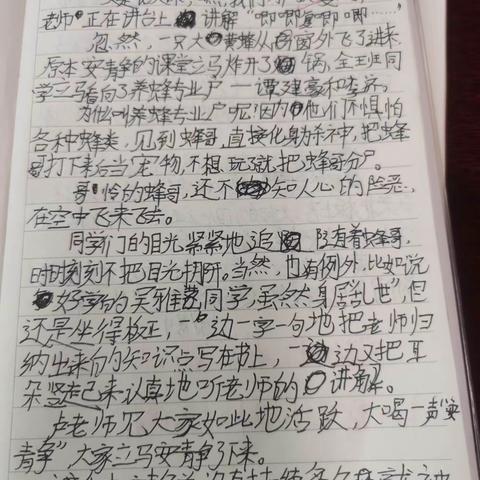 老师正在讲台上讲解“唧唧复唧唧……”
忽然,一只大黄蜂从窗外飞了进来,
原本安静的课堂立马炸开了锅,全班同
学立马看向了养蜂专业户——谭建豪和李齐。
为什么叫养蜂专业户呢?因为他们不惧怕
各种蜂类,见到蜂哥,直接化身杀神,把蜂
哥打下来后当“宠”物,不想玩了就把蜂哥分尸。
哥怜的蜂哥,还不知人心的险恶,
在空中飞来飞去。
同学们的目光紧紧地追随着蜂哥,
时时刻刻不把目光挪开。当然,也有例外,比如说
好学的吴雅同学,虽然身居“乱世”,但
还是坐得板正,一边一字一句地把老师归
纳出来的知识点写在书上,一边又把耳
朵竖起来认真地听老师的讲解。
卢老师见大家如此地活跃,大喝一声“安
静”大家立马安静了下来。